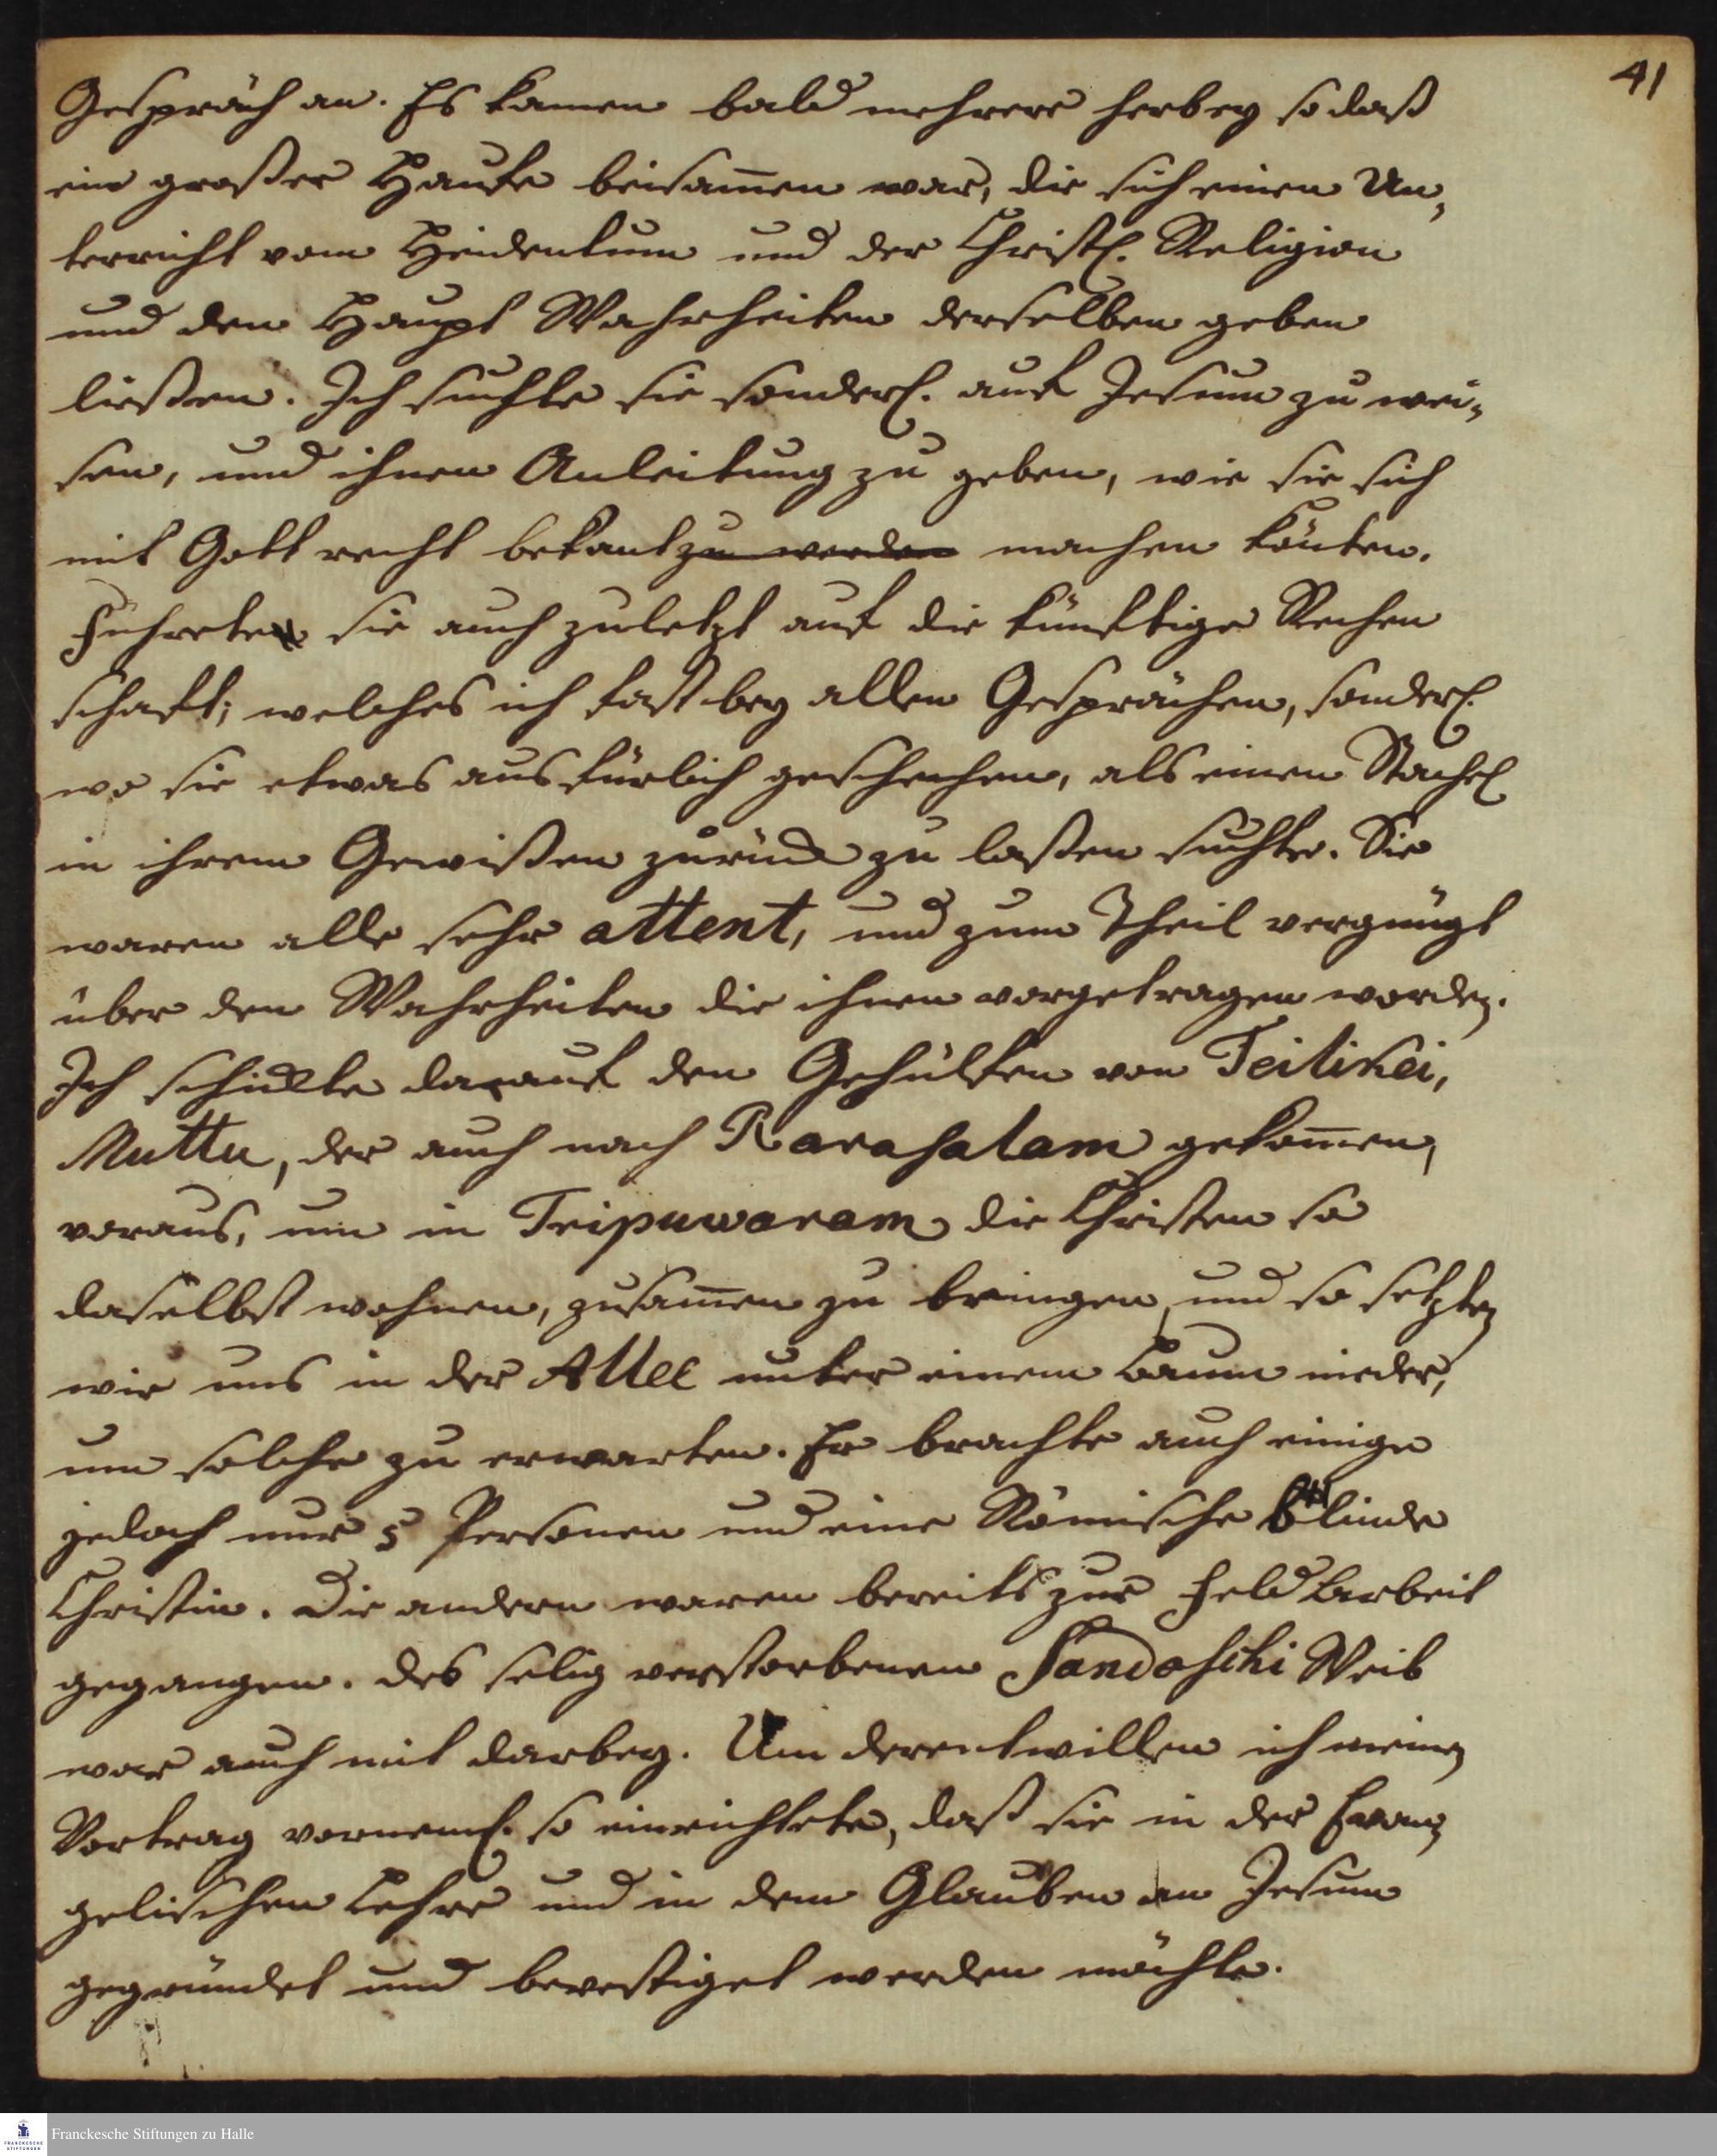 41
Gespräch an. Es kamen bald mehrere herbey so daß
ein großer Haufe beisam̄en war, die sich einen Un,
terricht vom Heidentum und der Christl. Religion
und den Haupt Wahrheiten derselben geben
ließen. Ich suchte sie sonderl. auf Jesum zu wei,
sen, und ihnen Anleitung zu geben, wie sie sich
mit Gott recht bekant zu werden machen könten.
Führete sie auch zuletzt auf die künftige Rechen
schaft; welches ich fast bey allen Gesprächen, sonderl.
wo sie etwas ausfürlich geschehen, als einen Stachel
in ihrem Gewißen zurück zu laßen suchte. Sie
waren alle sehr attent, und zum Theil vergnügt
über den Wahrheiten die ihnen vorgetragen worden.
Ich schickte darauf den Gehülfen von Teilikei,
Muttu, der auch nach Rarasalam gekom̄en,
voraus, um in Tripuwaram die Christen so
daselbst wohnen, zusam̄en zu bringen, und so setzten
wir uns in der Allee unter einem Baum nieder,
um solche zu erwarten. Er brachte auch einige
jedoch nur 5 Personen und eine Römische blinde
Christin. Die andern waren bereits zur Feld Arbeit
gegangen. Des selig verstorbenen Sandoschi Weib
war auch mit darbey. Um derentwillen ich meinen
Vortrag vorneml. so einrichtete, daß sie in der Evan,
gelischen Lehre und in dem Glauben an Jesum
gegründet und bevestiget werden möchte.
Franckesche Stiftungen zu Halle
FRANCKESCHE
STIFTUNGEN